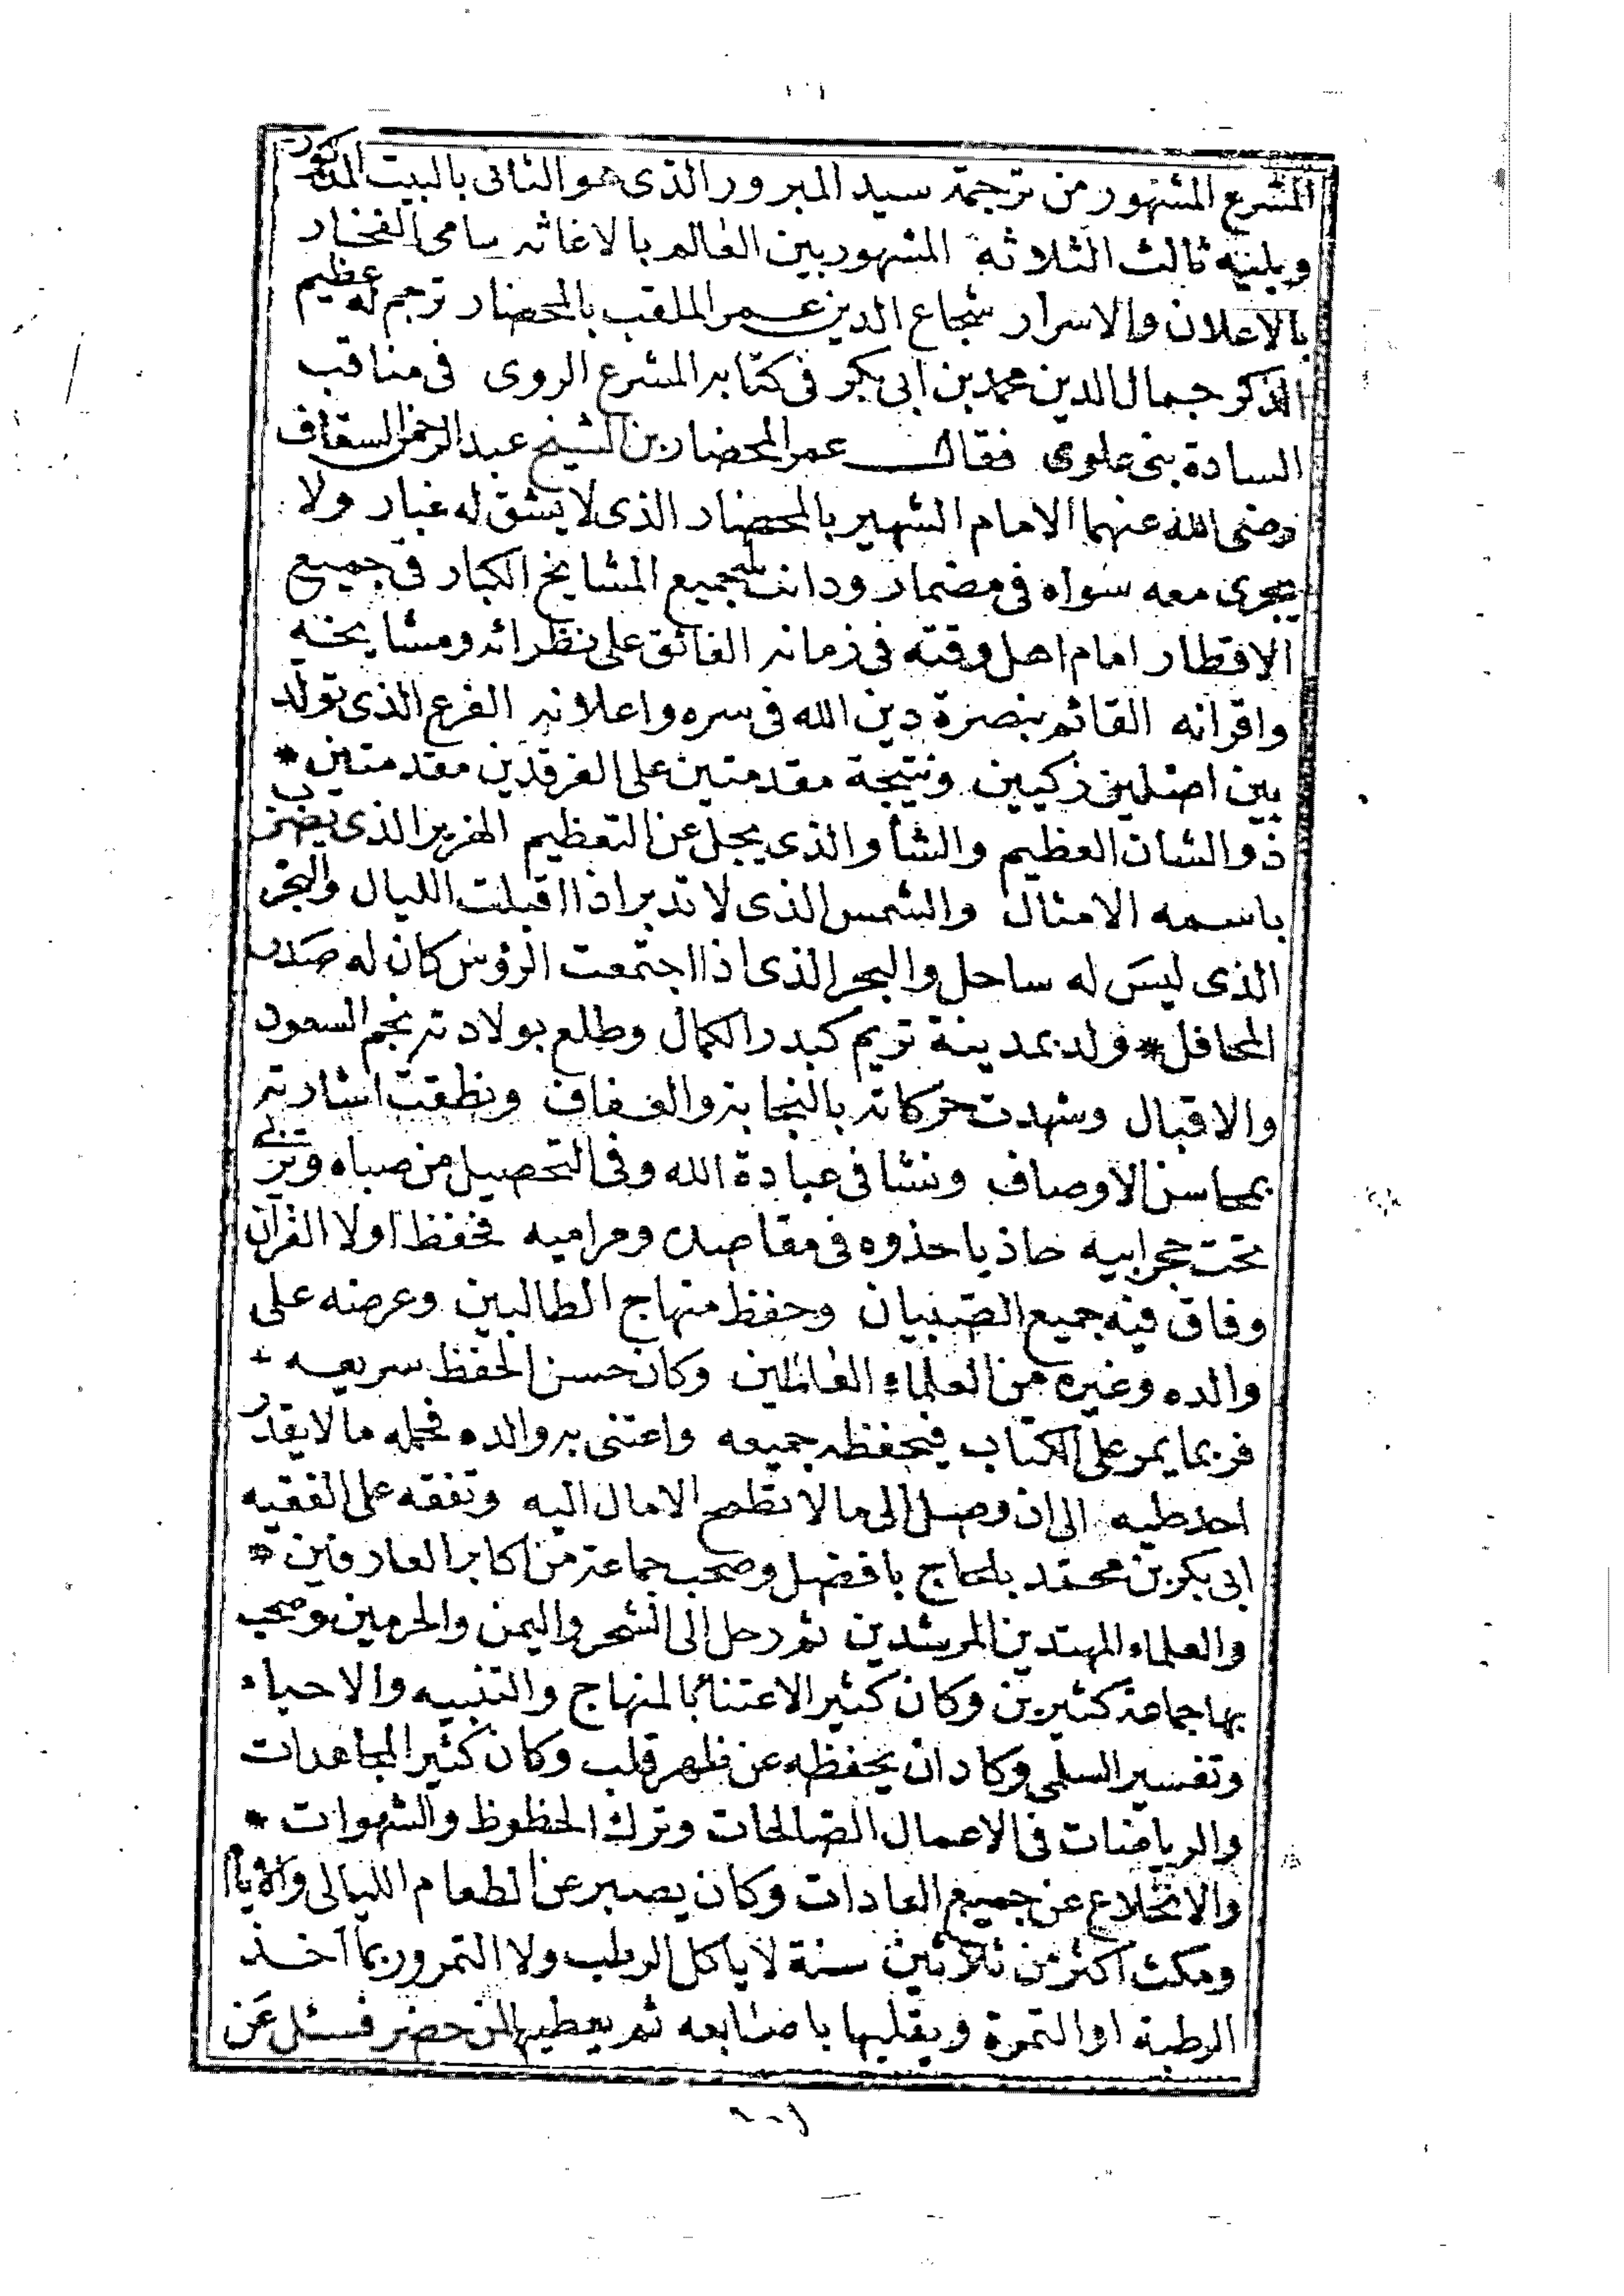 المشرع المشهور من ترجمة سيد المبرور الذى هو الثانى بالبيت المذكور
ويليه ثالث الثلاثة المشهور بين العالم بالاغاثه سامى الفخار
بالاعلان والاسرار شجاع الدين عمر الملقب بالمحضار ترجم له عظيم
الذكر جمال الدين محمد بن ابى بكر فى كتابه المشرع الروى فى مناقب
السادة بنى علوى فقال عمر المحضار بن الشيخ عبد الرحمن السقاف
رضى الله عنهما الامام الشهير بالمحضار الذى لا يشق له غبار ولا
يجرى معه سواه فى مضمار ودانت له جميع المشايخ الكبار فى جميع
الاقطار امام اهل وقته فى زمانه الفائق على نظرائه ومشايخه
واقرانه القائم بنصرة دين الله فى سره واعلانه الفرع الذى تولد
بين اصلين زكيين ونتيجة مقدمتين على الفرقدين مقدمتين *
ذو الشان العظيم والشأو الذى يجل عن التعظيم الهزبر الذى يضرب
باسمه الامثال والشمس الذى لا تدبر اذا اقبلت الليال والبحر
الذى ليس له ساحل والبحر الذى اذا اجتمعت الرؤس كان له صدر
المحافل * ولد بمدينة تريم كبدر الكمال وطلع بولادته نجم السعود
والاقبال وشهدت حركاته بالنجابة والعفاف ونطقت اشارته
بمحاسن الاوصاف ونشا فى عبادة الله وفى التحصيل من صباه وتربى
تحت حجر ابيه حاذيا حذوه فى مقاصده ومراميه فحفظ اولا القرآن
وفاق فيه جميع الصبيان وحفظ منهاج الطالبين وعرضه على
والده وغيره من العلماء العاملين وكان حسن الحفظ سريعه *
فربما يمر على الكتاب فيحفظه جميعه واعتنى به والده فحمله ما لا يقدر
احد عليه الى ان وصل الى ما لا تطمح الامال اليه وتفقه على الفقيه
ابى بكر بن محمد بلحاج بافضل وصحب جماعة من اكابر العارفين *
والعلماء المهتدين المرشدين ثم رحل الى الشحر واليمن والحرمين وصحب
بها جماعة كثيرين وكان كثير الاعتناء بالمنهاج والتنبيه والاحياء
وتفسير السلمى وكاد ان يحفظه عن ظهر قلب وكان كثير المجاهدات
والرياضات فى الاعمال الصالحات وترك الحظوظ والشهوات *
والانخلاع عن جميع العادات وكان يصبر عن الطعام الليالى والايام
ومكث اكثر من ثلاثين سنة لا ياكل الرطب ولا التمر وربما آخذ
الرطبة او التمرة ويقلبها باصابعه ثم يعطيها لمن حضر فسئل عن